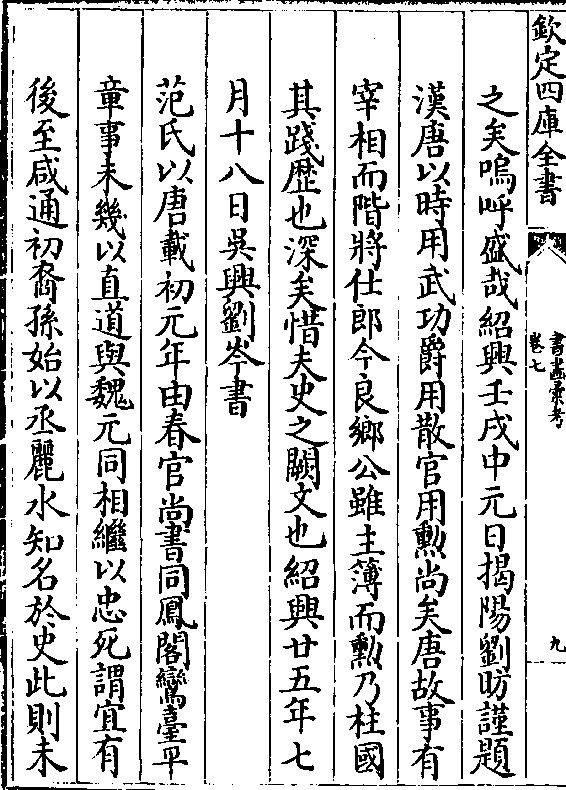 欽定四庫全書
書畫彙考
卷七
九
之矣嗚呼盛哉紹興壬戌中元日揭陽劉昉謹題
漢唐以時用武功爵用散官用勲尚矣唐故事有
宰相而階將仕郎今良鄉公雖主簿而勲乃柱國
其踐歴也深矣惜夫史之闕文也紹興廿五年七
月十八日吳興劉岑書
范氏以唐載初元年由春官尚書同鳳閣鸞臺平
章事未幾以直道與魏元同相繼以忠死謂宜有
後至咸通初裔孫始以丞麗水知名於史此則未